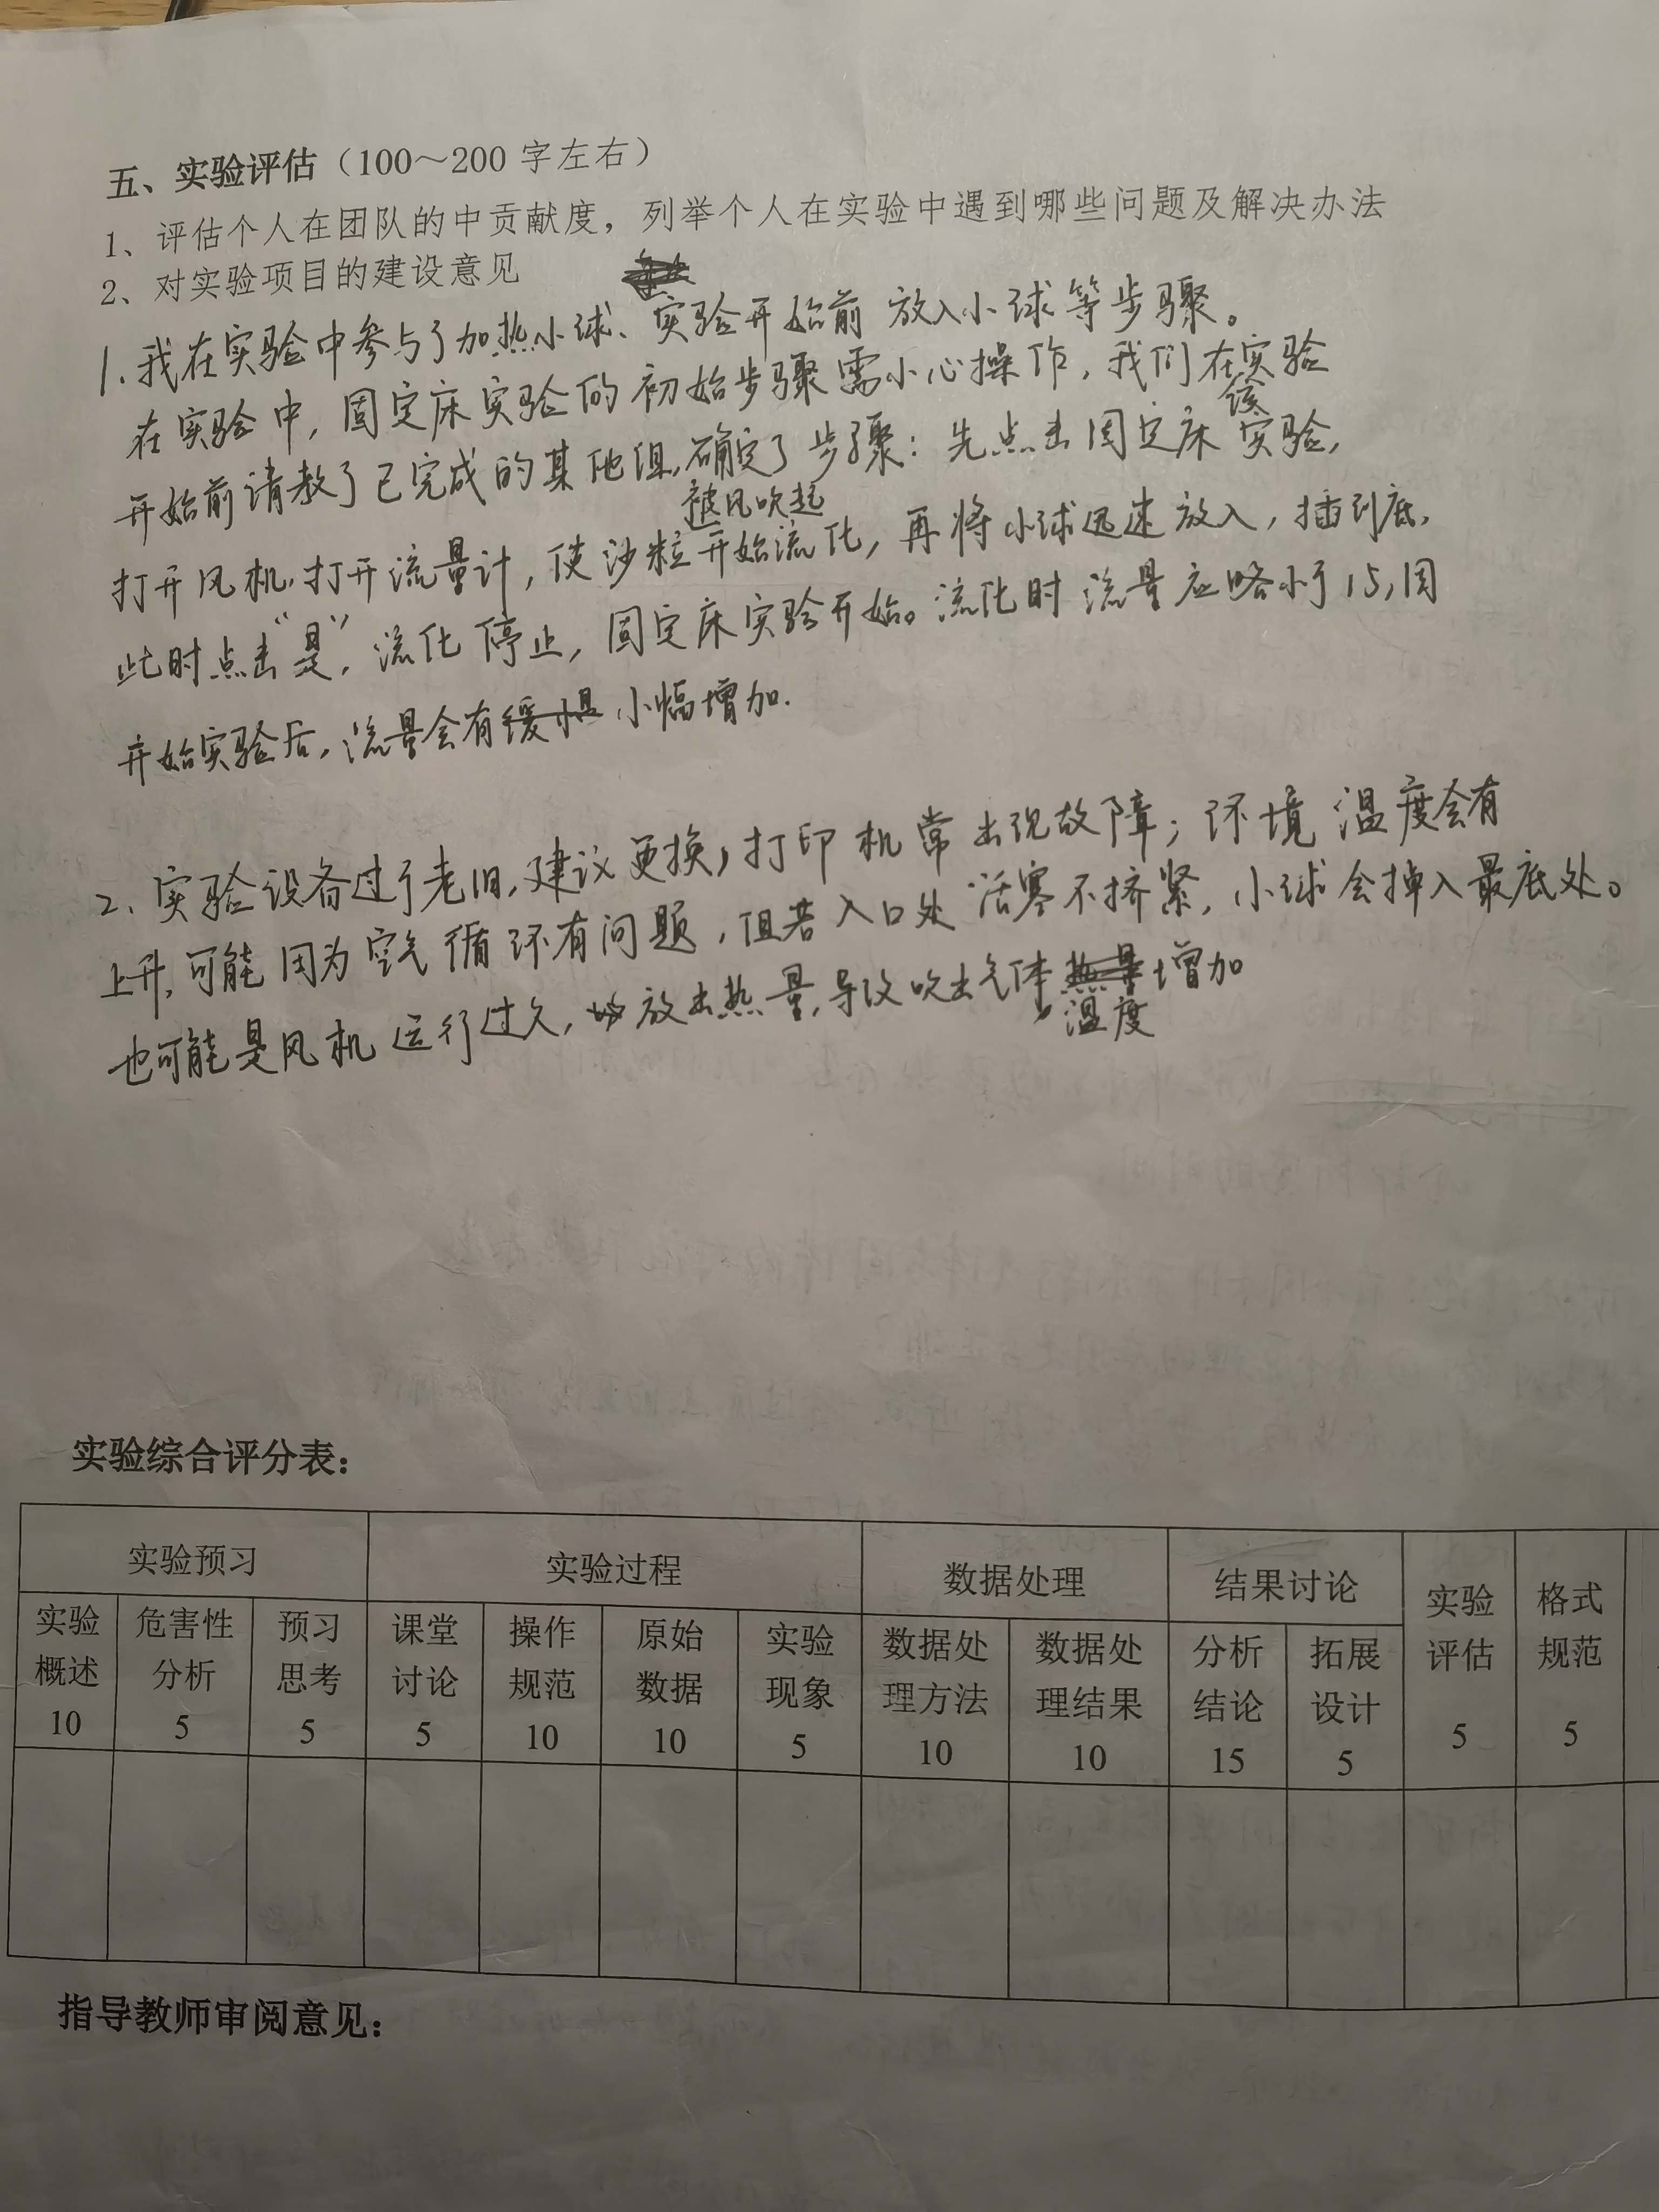 五、实验评估（100～200 字左右）
1、评估个人在团队的中贡献度，列举个人在实验中遇到哪些问题及解决办法
2、对实验项目的建设意见
1.我在实验中参与了加热小球、实验开始前放入小球等步骤。
在实验中，固定床实验的初始步骤需小心操作，我们在该实验
开始前请教了已完成的其他组，确定了步骤：先点击固定床实验，
打开风机，打开流量计，使沙粒被风吹起开始流化，再将小球迅速放入，插到底，
此时点击“是”，流化停止，固定床实验开始。流化时流量应略小于15，因
开始实验后，流量会有小幅增加.
2、实验设备过于老旧，建议更换，打印机常出现故障；环境温度会有
上升，可能因为空气循环有问题，且若入口处活塞不挤紧，小球会掉入最底处。
也可能是风机运行过久，放出热量，导致吹出气体温度增加
实验综合评分表：
实验预习 实验过程 数据处理 结果讨论 实验评估 5 格式规范 5
实验概述 10 危害性分析 5 预习思考 5 课堂讨论 5 操作规范 10 原始数据 10 实验现象 5 数据处理方法 10 数据处理结果 10 分析结论 15 拓展设计 5
指导教师审阅意见：